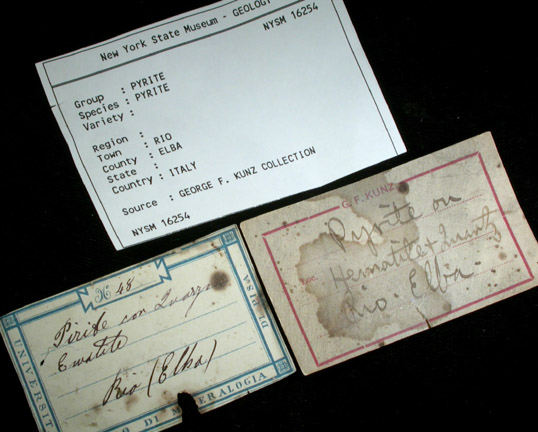 New York State Museum - GEOLOGY
NYSM 16254
Group : PYRITE
Species : PYRITE
Variety :
Region :
Town : RIO
County : ELBA
State :
Country : ITALY
Source : GEORGE F. KUNZ COLLECTION
NYSM 16254
G. F. KUNZ
Pyrite on
Loc.
Hematite + Quartz
Rio. Elba.
N 48
Pirite con Quarzo
Ematite
Rio (Elba)
UNIVERSIT
DI MINERALOGIA
DI PISA